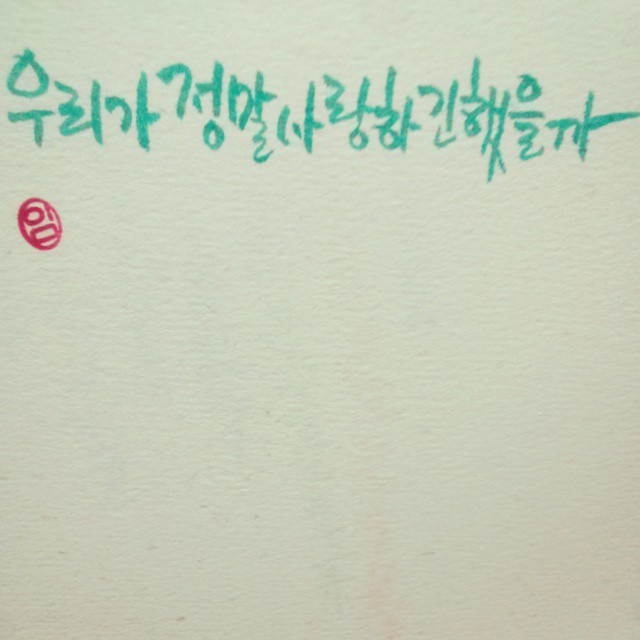 우리가 정말 사랑하긴 했을까
임